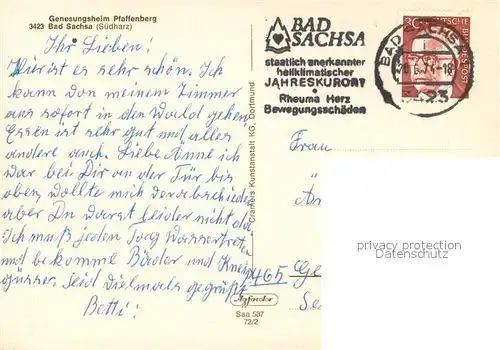 Genesungsheim Pfaffenberg
3423 Bad Sachsa (Südharz)
Ihr Lieben!
Hier ist es sehr schön. Ich
kann von meinem Zimmer
aus sofort in den Wald gehen
Essen ist sehr gut und alles
andere auch. Liebe Anne ich
war bei Dir an der Tür bis
oben, wollte mich verabschieden
aber Du warst leider nicht da
Ich muß jeden Tag Wassertreten
und bekomme Bäder und Kneip
güsser. Seid vielmals gegrüßt
Betti!
Cramers Kunstanstalt KG, Dortmund
Agfacolor
Ssa 587
72/2
BAD
SACHSA
staatlich anerkannter
heilklimatischer
JAHRESKURORT
Rheuma Herz
Bewegungsschäden
BAD SACHSA
3423
30 DEUTSCHE BUNDESPOST
Frau
465
privacy protection
Datenschutz